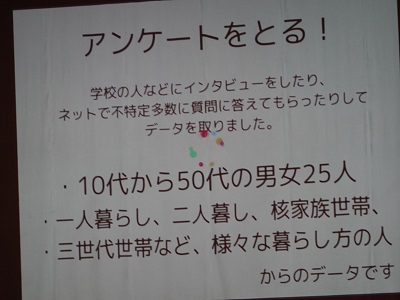 アンケートをとる！
学校の人などにインタビューをしたり、
ネットで不特定多数に質問に答えてもらったりして
データを取りました。
・10代から50代の男女25人
・一人暮らし、二人暮し、核家族世帯、
・三世代世帯など、様々な暮らし方の人
からのデータです